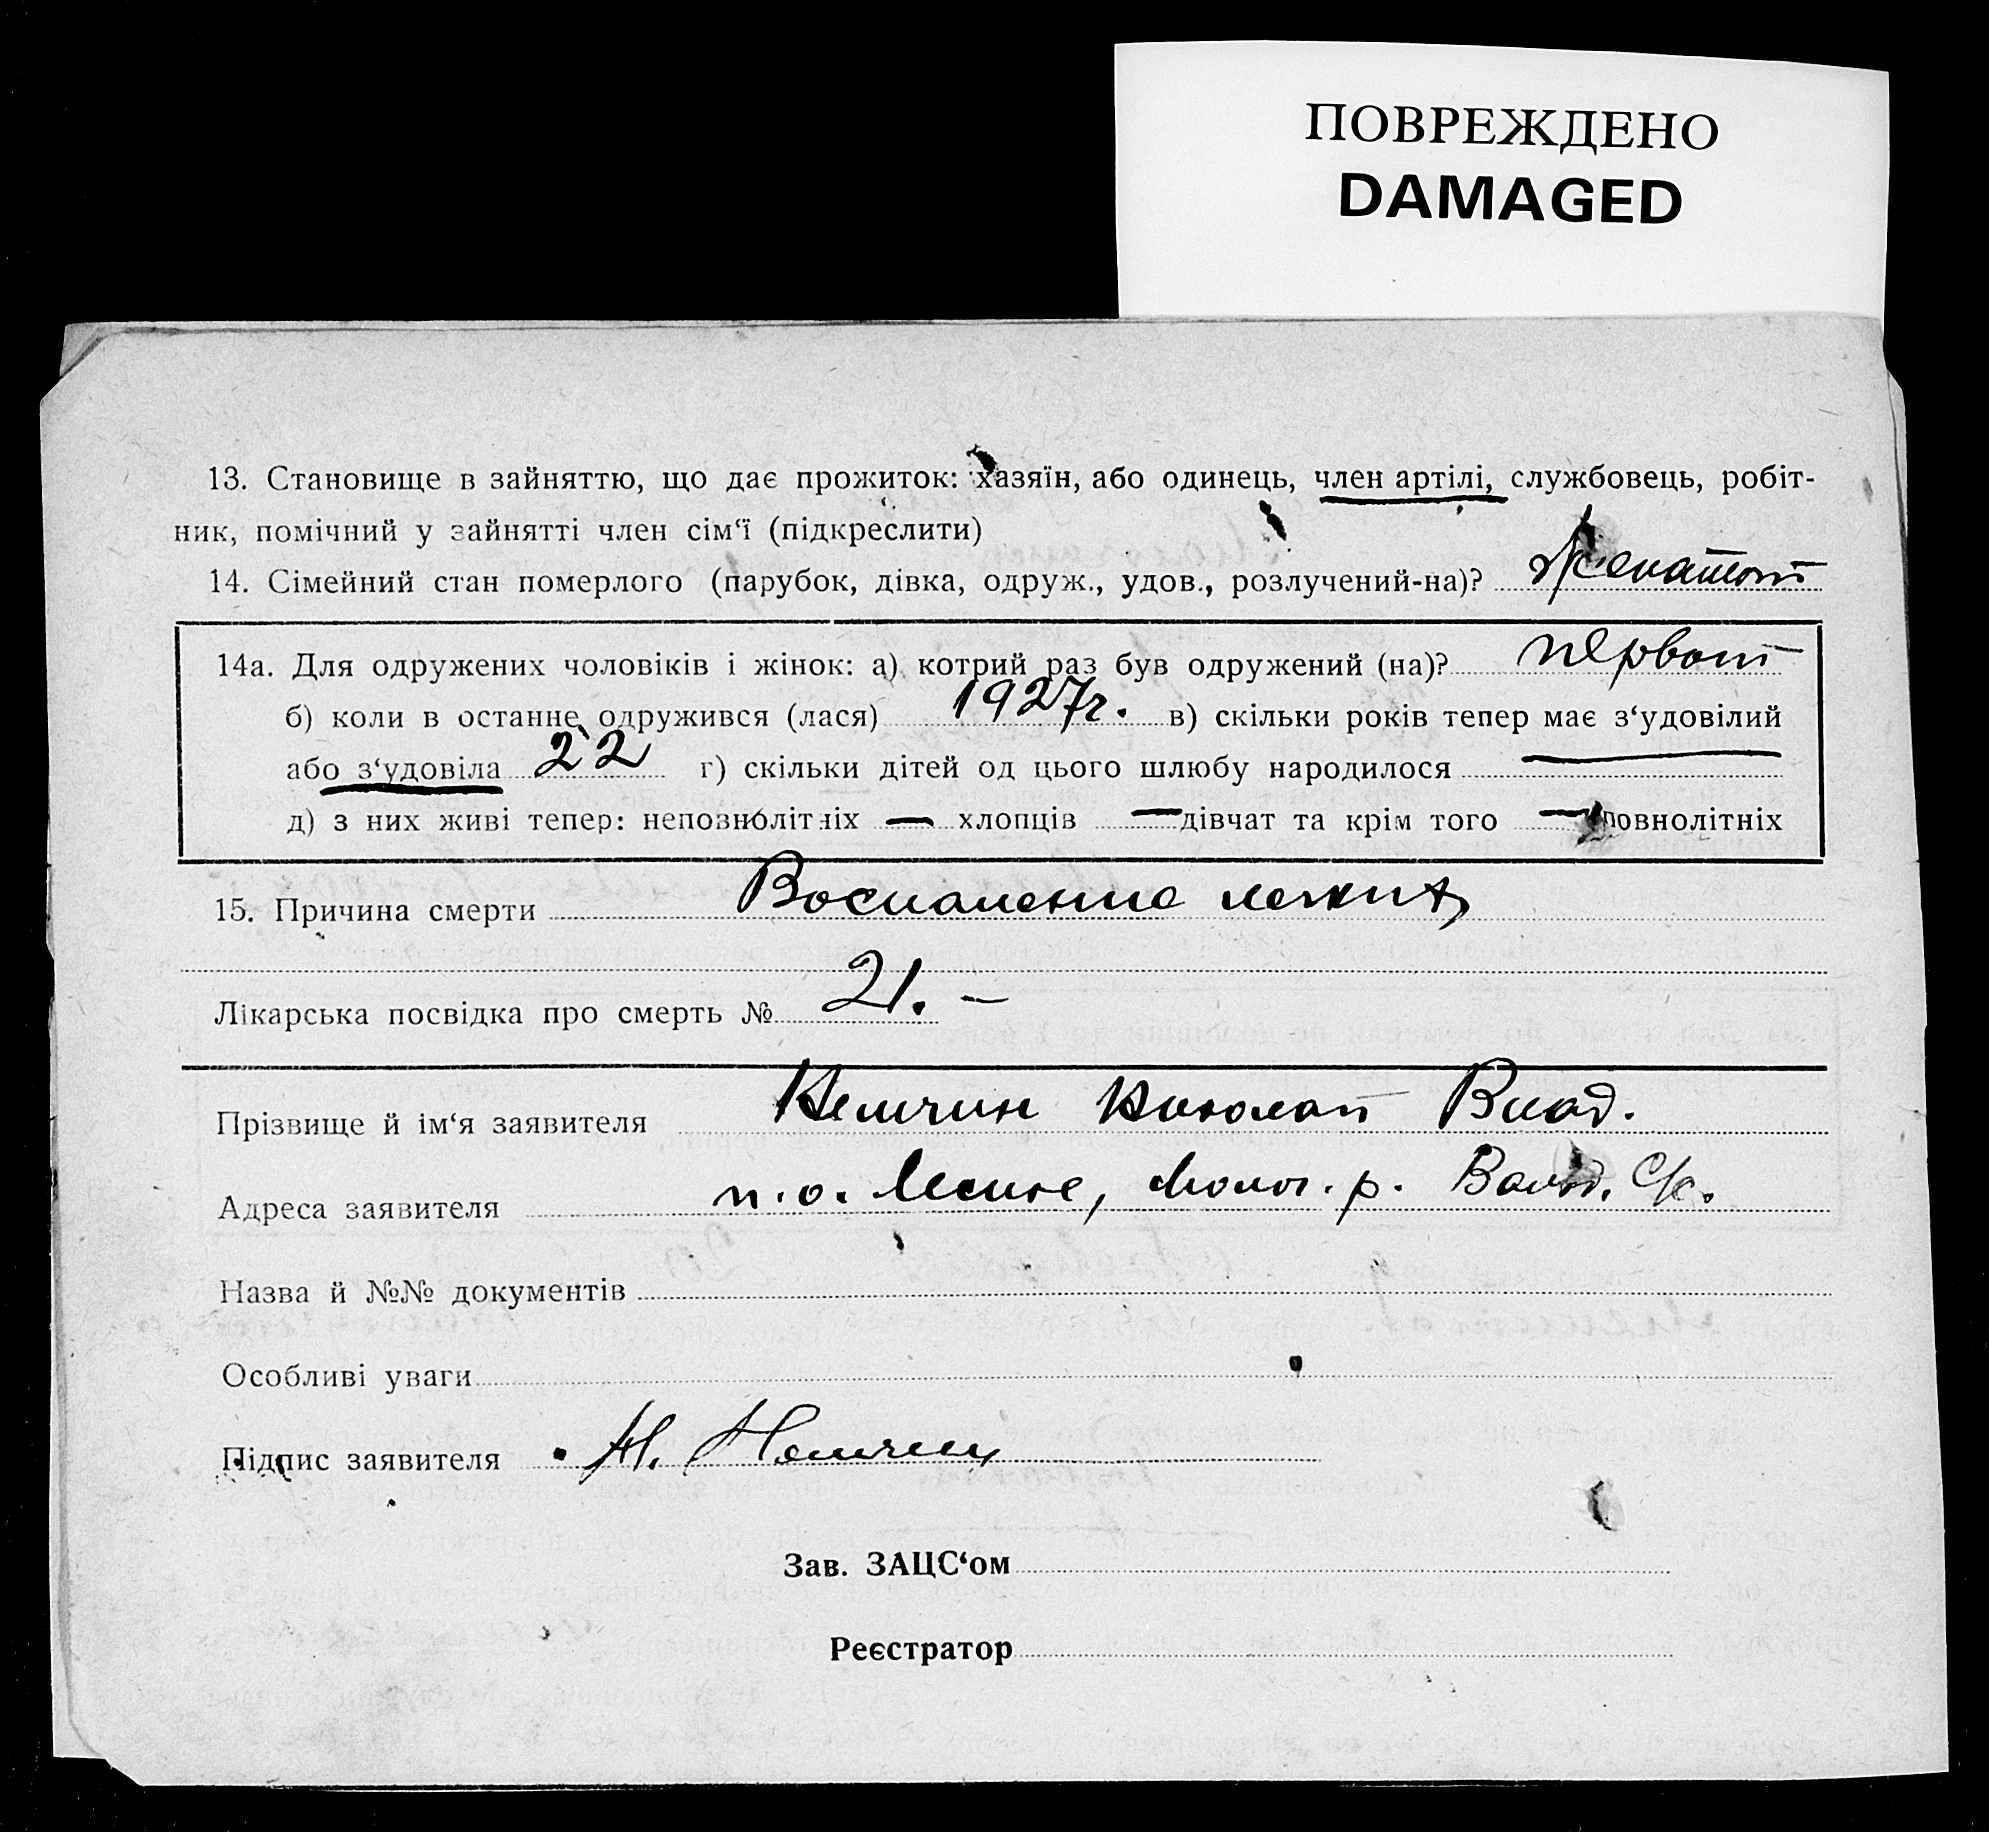 ПОВРЕЖДЕНО
DAMAGED
13. Становище в зайняттю, що дає прожиток: хазяїн, або одинець, член артілі, службовець, робіт-
ник, помічний у зайнятті член сім‘ї (підкреслити)
14. Сімейний стан померлого (парубок, дівка, одруж., удов., розлучений-на)? женатый
14а. Для одружених чоловіків і жінок: а) котрий раз був одружений (на)? первый
б) коли в останнє одружився (лася) 1927г. в) скільки років тепер має з‘удовілий
або з‘удовіла 22 г) скільки дітей од цього шлюбу народилося
д) з них живі тепер: неповнолітніх — хлопців — дівчат та крім того — повнолітніх
15. Причина смерти Воспаление легких
Лікарська посвідка про смерть № 21. —
Прізвище й ім‘я заявителя Николай Влад.
Адреса заявителя п.о. р. С/с.
Назва й №№ документів
Особливі уваги
Підпис заявителя Н.
Зав. ЗАЦС‘ом
Реєстратор